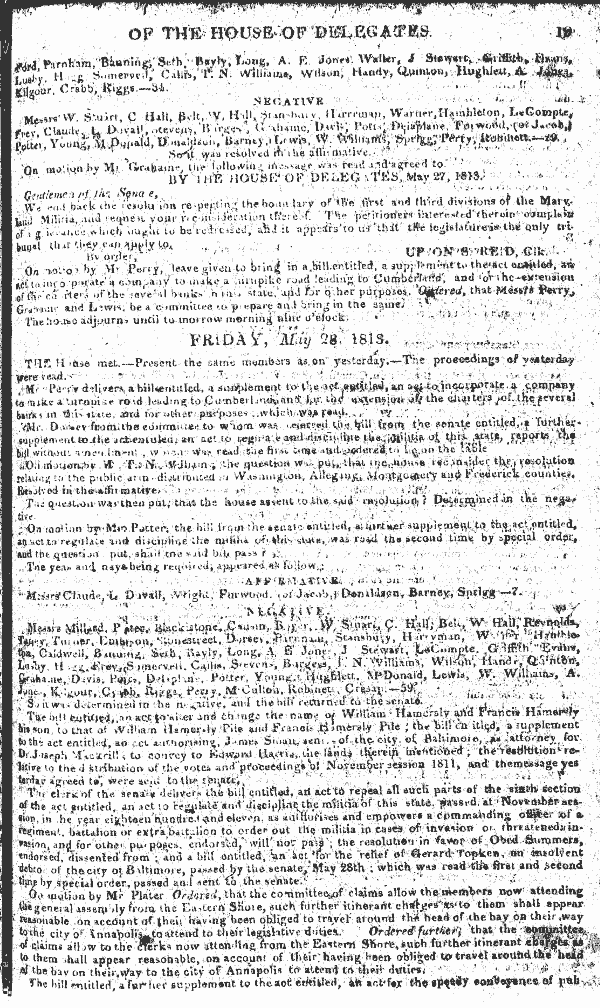 OF THE HOUSE OF DELEGATES. 19
Ford, Parnham, Banning, Seth, Bayly, Long, A. E. Jones, Waller, J. Stewart, Griffith, Evans,
Lusby, Hogg, Somervell, Callis, T. N. Williams, Wilson, Handy, Quinton, Hughlett, A. Jones,
Kilgour, Crabb, Riggs.—34.
NEGATIVE
Messrs W. Stuart, C. Hall, Belt, W. Hall, Stansbury, Harryman, Warner, Hambleton, LeCompte,
Frey, Claude, L. Duvall, Stevens, Burgess, Grahame, Davis, Potts, Delaplane, Forwood, (of Jacob,)
Potter, Young, M'Donald, Donaldson, Barney, Lewis, W. Williams, Sprigg, Perry, Robinett.—29.
So it was resolved in the affirmative.
On motion by Mr. Grahame, the following message was read and agreed to.
BY THE HOUSE OF DELEGATES, May 27, 1813.
Gentlemen of the Senate,
We send back the resolution respecting the boundary of the first and third divisions of the Mary-
land Militia, and request your reconsideration thereof. The petitioners interested therein complain
of a grievance which ought to be redressed, and it appears to us that the legislature is the only tri-
bunal that they can apply to.
By order, UPTON S. REID, Clk.
On motion by Mr. Perry, leave given to bring in a bill entitled, a supplement to the act entitled, an
act to incorporate a company to make a turnpike road leading to Cumberland, and for the extension
of the charters of the several banks in this state, and for other purposes. Ordered, that Messrs Perry,
Grahame and Lewis, be a committee to prepare and bring in the same.
The house adjourns until to-morrow morning nine o'clock.
FRIDAY, May 28, 1813.
THE House met.—Present the same members as on yesterday.—The proceedings of yesterday
were read.
Mr. Perry delivers a bill entitled, a supplement to the act entitled, an act to incorporate a company
to make a turnpike road leading to Cumberland, and for the extension of the charters of the several
banks in this state, and for other purposes; which was read.
Mr. Dorsey from the committee to whom was referred the bill from the senate entitled, a further
supplement to the act entitled, an act to regulate and discipline the militia of this state, reports the
bill without amendment, which was read the first time and ordered to lie on the table
On motion by Mr. T. N. Williams, the question was put, that the house reconsider the resolution
relating to the public arms distributed in Washington, Allegany, Montgomery and Frederick counties.
Resolved in the affirmative.
The question was then put, that the house assent to the said resolution? Determined in the nega-
tive
On motion by Mr. Potter, the bill from the senate entitled, a further supplement to the act entitled,
an act to regulate and discipline the militia of this state, was read the second time by special order,
and the question put, shall the said bill pass?
The yeas and nays being required, appeared as follow:
AFFIRMATIVE.
Messrs Claude, L. Duvall, Wright, Forwood, (of Jacob,) Donaldson, Barney, Sprigg—7.
NEGATIVE.
Messrs Millard, Plater, Blackistone, Causin, W. Stuart, C. Hall, Belt, W. Hall, Reynolds,
Taney, Turner, Emerson, Stonestreet, Dorsey, Parnham, Stansbury, Harryman, Warner, Hamble-
ton, Caldwell, Banning, Seth, Bayly, Long, A. E. Jones, J. Stewart, LeCompte, Griffith, Evans,
Lusby, Hogg, Frey, Somervell, Callis, Stevens, Burgess, T. N. Williams, Wilson, Handy, Quinton,
Grahame, Davis, Potts, Delaplane, Potter, Young, Hughlett, M'Donald, Lewis, W. Williams, A.
Jones, Kilgour, Crabb, Riggs, Perry, M'Culloh, Robinett, Cresap.—59.
So it was determined in the negative, and the bill returned to the senate.
The bill entitled, an act to alter and change the name of William Hamersly and Francis Hamersly
his son, to that of William Hamersly Pile and Francis Hamersly Pile; the bill entitled, a supplement
to the act entitled, an act authorising James Sloan, senr. of the city of Baltimore, as attorney for
Dr. Joseph Macgrill, to convey to Edward Harris, the lands therein mentioned; the resolution re-
lative to the distribution of the votes and proceedings of November session 1811, and the message yes
terday agreed to, were sent to the senate.
The clerk of the senate delivers the bill entitled, an act to repeal all such parts of the sixth section
of the act entitled, an act to regulate and discipline the militia of this state, passed at November ses-
sion, in the year eighteen hundred and eleven, as authorises and empowers a commanding officer of a
regiment, battalion or extra battalion to order out the militia in cases of invasion or threatened in-
vasion, and for other purposes, endorsed, will not pass; the resolution in favor of Obed Summers,
endorsed, dissented from; and a bill entitled, an act for the relief of Gerard Topken, an insolvent
debtor of the city of Baltimore, passed by the senate, May 28th; which was read the first and second
time by special order, passed and sent to the senate.
On motion by Mr Plater Ordered, that the committee of claims allow the members now attending
the general assembly from the Eastern Shore, such further itinerant charges as to them shall appear
reasonable, on account of their having been obliged to travel around the head of the bay on their way
to the city of Annapolis, to attend to their legislative duties. Ordered further, that the committee
of claims allow to the clerks now attending from the Eastern Shore, such further itinerant charges as
to them shall appear reasonable, on account of their having been obliged to travel around the head
of the bay on their way to the city of Annapolis to attend to their duties.
The bill entitled, a further supplement to the act entitled, an act for the speedy conveyance of pub-